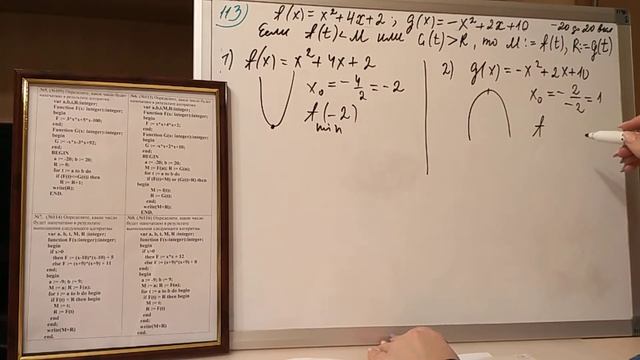 113
f(x)=x²+4x+2 ; g(x)=-x²+2x+10 -20 до 20 вкл
Если f(t)<M или G(t)>R, то M:=f(t), R:=g(t)
1) f(x)=x²+4x+2
x₀=-4/2=-2
f(-2)
min
2) g(x)=-x²+2x+10
x₀=-2/-2=1
f
№5. Определите, какое число будет
напечатано в результате алгоритма:
var a,b,t,R:integer;
Function F(x: integer):integer;
begin
end;
Function G(x: integer):integer;
begin
end;
BEGIN
a := -20; b := 20;
R := 0;
for t := a to b do
R := R+1;
write(R);
END.
№6. Определите, какое число будет
напечатано в результате алгоритма:
var a,b,t,M,R:integer;
Function F(x:integer):integer;
begin
F := x*x+4*x+2;
end;
Function G(x:integer):integer;
begin
G := -x*x+2*x+10;
end;
BEGIN
a := -20; b := 20;
M := F(a); R := G(a);
for t := a to b do
if (F(t)<M) or (G(t)>R) then
begin
M := F(t);
R := G(t);
end;
write(M+R);
END.
№7. (№114) Определите, какое число
будет напечатано в результате
выполнения следующего алгоритма:
var a, b, t, M, R :integer;
function F(x:integer):integer;
begin
if x>0
end;
begin
a := -9; b := 9;
M := a; R := F(a);
for t := a to b do begin
M := t;
R := F(t)
end
end;
write(M+R)
end.
Определите, какое число
будет напечатано в результате
выполнения следующего алгоритма:
var a, b, t, M, R :integer;
function F(x:integer):integer;
begin
if x>0
then F := x*x + 12
end;
begin
a := -9; b := 9;
M := a; R := F(a);
for t := a to b do begin
M := t;
R := F(t)
end
end;
write(M+R)
end.